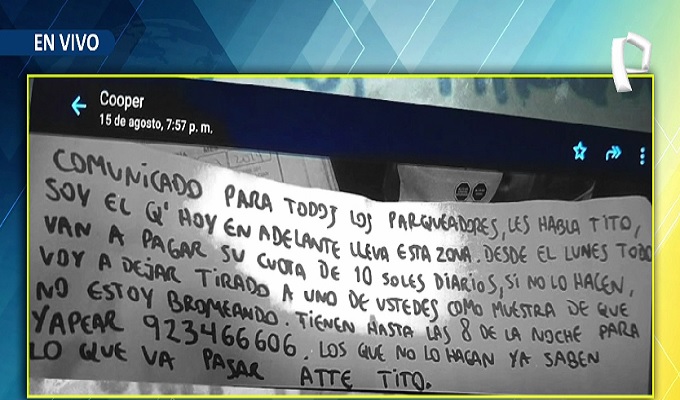 EN VIVO
Cooper
15 de agosto, 7:57 p. m.
COMUNICADO PARA TODOS LOS PARQUEADORES, LES HABLA TITO,
SOY EL Q' HOY EN ADELANTE LLEVA ESTA ZONA. DESDE EL LUNES TODO
VAN A PAGAR SU CUOTA DE 10 SOLES DIARIOS, SI NO LO HACEN,
VOY A DEJAR TIRADO A UNO DE USTEDES COMO MUESTRA DE QUE
NO ESTOY BROMEANDO. TIENEN HASTA LAS 8 DE LA NOCHE PARA
YAPEAR 923466606. LOS QUE NO LO HAGAN YA SABEN
LO QUE VA PASAR ATTE TITO.